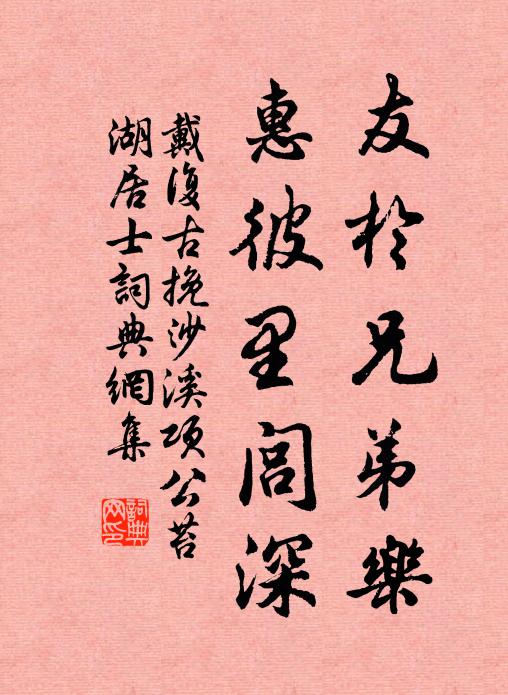 友於兄弟樂
惠彼里閭深
戴復古挽沙溪項公苔
湖居士詞典網集
詞典网印